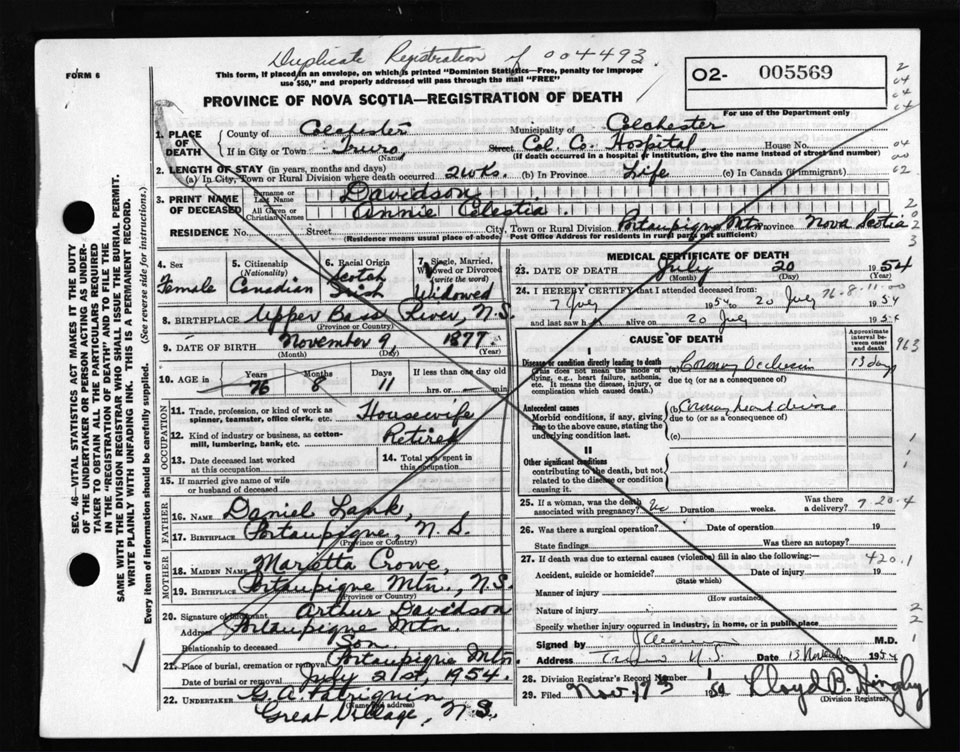 Duplicate Registration of 004493.
FORM 6
This form, if placed in an envelope, on which is printed "Dominion Statistics—Free, penalty for improper use $50," and properly addressed will pass through the mail "FREE"
O2- 005569
For use of the Department only
PROVINCE OF NOVA SCOTIA—REGISTRATION OF DEATH
1. PLACE OF DEATH
County of Colchester Municipality of Colchester
If in City or Town Truro (Name) Street Col. Co. Hospital. House No.
(If death occurred in a hospital or institution, give the name instead of street and number)
2. LENGTH OF STAY (in years, months and days)
(a) In City, Town or Rural Division where death occurred 2 wks. (b) In Province Life (c) In Canada (if immigrant)
3. PRINT NAME OF DECEASED
Surname or Last Name Davidson
All Given or Christian Names Annie Celestia.
RESIDENCE No. Street City, Town or Rural Division Portaupique Mtn Province Nova Scotia
(Residence means usual place of abode) Post Office Address for residents in rural parts not sufficient)
4. Sex Female
5. Citizenship (Nationality) Canadian
6. Racial Origin Scotch Irish
7. Single, Married, Widowed or Divorced (write the word) Widowed
8. BIRTHPLACE Upper Bass River, N.S.
(Province or Country)
9. DATE OF BIRTH November 9, 1877
(Month) (Day) (Year)
10. AGE in Years 76 Months 8 Days 11 If less than one day old hrs. or min.
OCCUPATION
11. Trade, profession, or kind of work as spinner, teamster, office clerk, etc. Housewife
12. Kind of industry or business, as cotton-mill, lumbering, bank, etc. Retired
13. Date deceased last worked at this occupation
14. Total yrs. spent in this occupation
15. If married give name of wife or husband of deceased
FATHER
16. NAME Daniel Lank,
17. BIRTHPLACE Portaupique, N.S.
(Province or Country)
MOTHER
18. MAIDEN NAME Marietta Crowe,
19. BIRTHPLACE Portaupique Mtn., N.S.
(Province or Country)
20. Signature of informant Arthur Davidson
Address Portaupique Mtn.
Relationship to deceased Son.
21. Place of burial, cremation or removal Portaupique Mtn.
Date of burial or removal July 21st, 1954.
22. UNDERTAKER G. A. Patriquin
(Name and address)
Great Village, N.S.
MEDICAL CERTIFICATE OF DEATH
23. DATE OF DEATH July 20 1954
(Month) (Day) (Year)
24. I HEREBY CERTIFY that I attended deceased from:
76-8-11-00
7 July 1954 to 20 July 1954
and last saw h alive on 20 July 1954
CAUSE OF DEATH
Approximate interval between onset and death
963
I
Disease or condition directly leading to death
(This does not mean the mode of dying, e.g., heart failure, asthenia, etc. It means the disease, injury, or complication which caused death.)
(a) Coronary Occlusion 13 days
due to (or as a consequence of)
Antecedent causes
Morbid conditions, if any, giving rise to the above cause, stating the underlying condition last.
(b) Coronary heart disease
due to (or as a consequence of)
(c)
II
Other significant conditions contributing to the death, but not related to the disease or condition causing it.
25. If a woman, was the death associated with pregnancy? No Duration weeks. Was there a delivery? 7-20-4
26. Was there a surgical operation? Date of operation 19
State findings Was there an autopsy?
27. If death was due to external causes (violence) fill in also the following:— 420.1
Accident, suicide or homicide? Date of injury 19
(State which)
Manner of injury
(How sustained)
Nature of injury
Specify whether injury occurred in industry, in home, or in public place
Signed by M.D.
Address Truro N.S. Date 13 November 1954
28. Division Registrar's Record Number
29. Filed Nov. 13 1954 Lloyd B. Hingley
(Division Registrar)
SEC. 46—VITAL STATISTICS ACT MAKES IT THE DUTY OF THE UNDERTAKER OR PERSON ACTING AS UNDERTAKER TO OBTAIN ALL THE PARTICULARS REQUIRED IN THE "REGISTRATION OF DEATH" AND TO FILE THE SAME WITH THE DIVISION REGISTRAR WHO SHALL ISSUE THE BURIAL PERMIT.
WRITE PLAINLY WITH UNFADING INK. THIS IS A PERMANENT RECORD.
Every item of information should be carefully supplied. (See reverse side for instructions.)